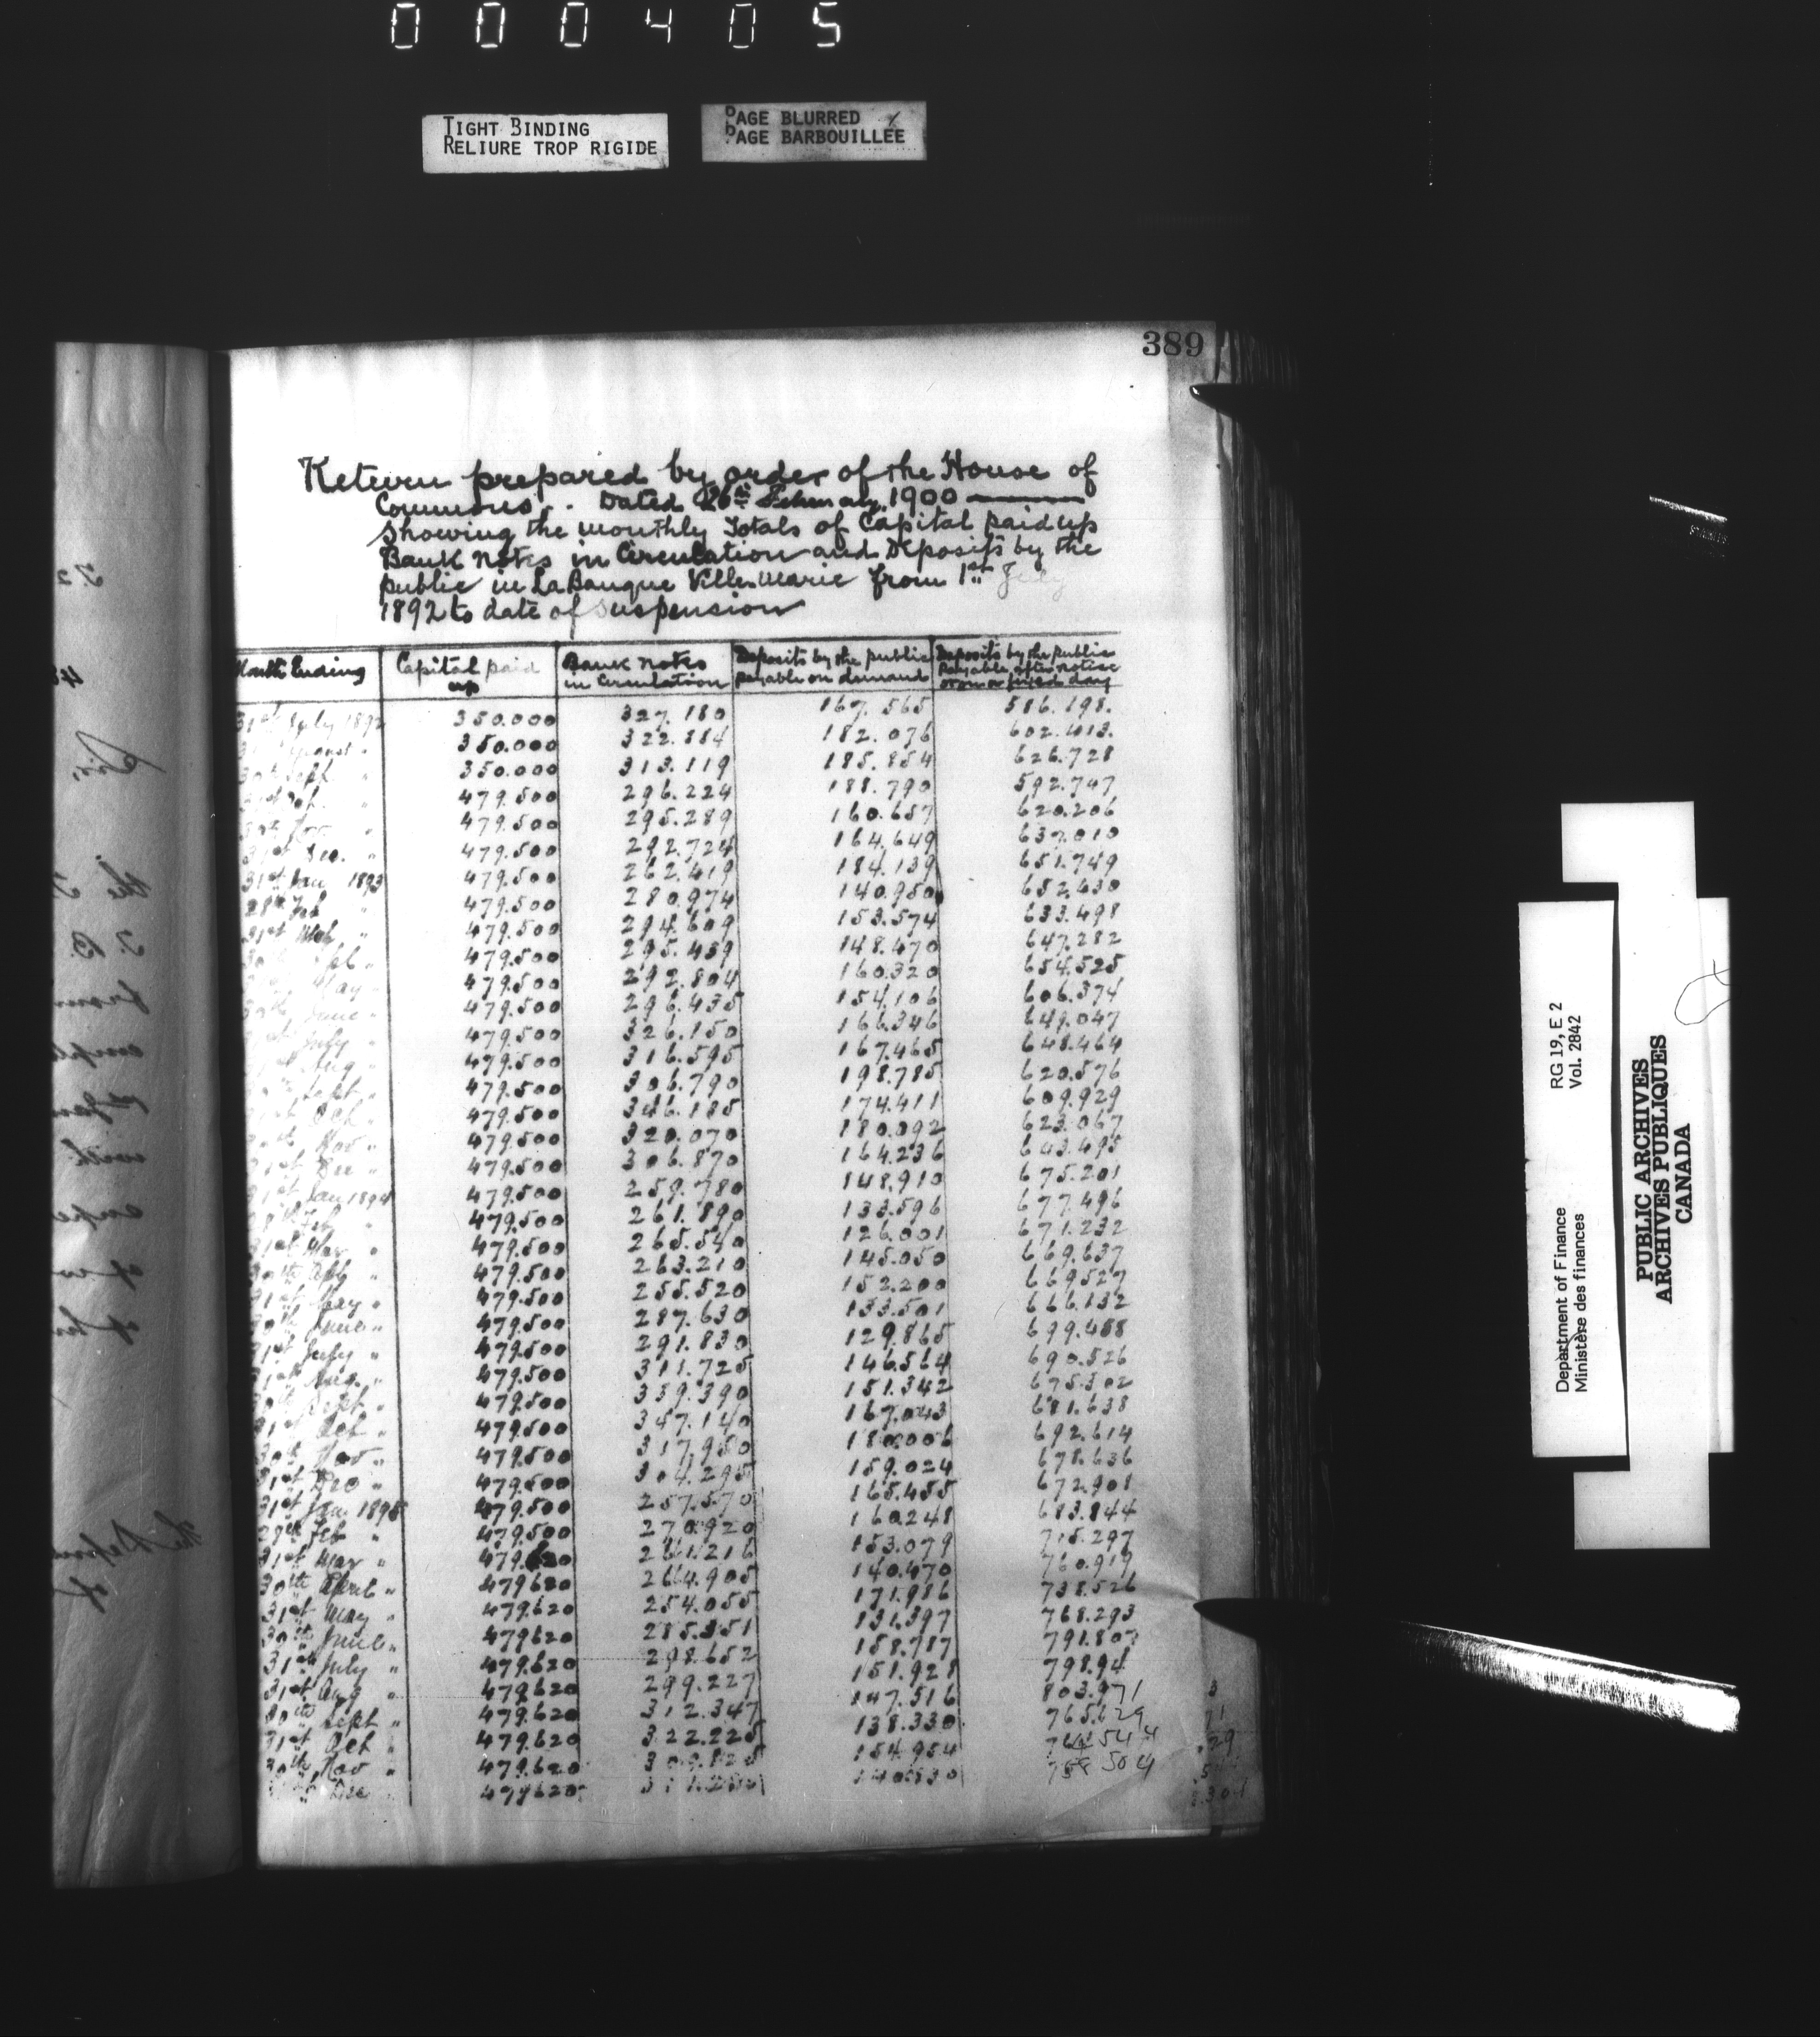 000405
TIGHT BINDING
RELIURE TROP RIGIDE
PAGE BLURRED
PAGE BARBOUILLEE
389
Return prepared by order of the House of
Commons. Dated 26th February 1900
Showing the monthly Totals of Capital paid up
Bank Notes in Circulation and Deposits by the
public in La Banque Ville-Marie from 1st July
1892 to date of Suspension
Month Ending Capital paid up Bank notes in Circulation Deposits by the public payable on demand Deposits by the public payable after notice or on a fixed day
31st July 1892 350.000 327.180 167.565 586.198.
31st August " 350.000 322.884 182.076 602.413.
30th Sept. " 350.000 313.119 185.854 626.728
31st Oct. " 479.500 296.224 188.790 592.747
30th Nov. " 479.500 295.289 160.657 620.206
31st Dec. " 479.500 292.724 164.649 637.010
31st Jan 1893 479.500 262.419 184.139 651.749
28th Feb " 479.500 280.974 140.950 652.430
31st Mch " 479.500 294.609 153.574 633.498
30th Apl " 479.500 295.459 148.470 647.282
31st May " 479.500 292.804 160.320 654.525
30th June " 479.500 296.435 154.106 606.374
31st July " 479.500 326.150 166.346 649.047
31st Aug " 479.500 316.595 167.465 648.464
30th Sept " 479.500 306.790 198.785 620.576
31st Oct " 479.500 346.185 174.411 609.929
30th Nov " 479.500 320.070 180.092 623.067
31st Dec " 479.500 306.870 164.236 643.495
31st Jan 1894 479.500 259.780 148.910 675.201
28th Feb " 479.500 261.890 133.596 677.496
31st Mar " 479.500 265.540 126.001 671.232
30th Apl " 479.500 263.210 145.050 669.637
31st May " 479.500 255.520 152.200 669527
30th June " 479.500 287.630 133.501 666.132
31st July " 479.500 291.830 129.865 699.458
31st Aug. " 479.500 311.725 146.564 690.526
30th Sept " 479.500 339.390 151.342 675.302
31st Oct " 479.500 347.140 167.043 681.638
30th Nov " 479.500 317.950 180.006 692.614
31st Dec " 479.500 304.295 159.024 678.636
31st Jan 1895 479.500 257.570 165.455 672.908
Feb " 479.500 270.920 160.248 683.844
31st Mar " 479.620 261.216 153.079 715.297
30th April " 479620 264.905 140.470 760.919
31st May " 479.620 254.055 171.986 738.526
30th June " 479620 285.351 131.397 768.293
31st July " 479.620 298.652 158.787 791.807
31st Aug " 479.620 299.227 151.928 798.94
30th Sept " 479.620 312.347 147.516 803.971
31st Oct " 479.620 322.225 138.330 765.629
30th Nov " 479.620 154.954
Dec 479620 140.830 504
RG 19, E 2
Vol. 2842
Department of Finance
Ministère des finances
PUBLIC ARCHIVES
ARCHIVES PUBLIQUES
CANADA